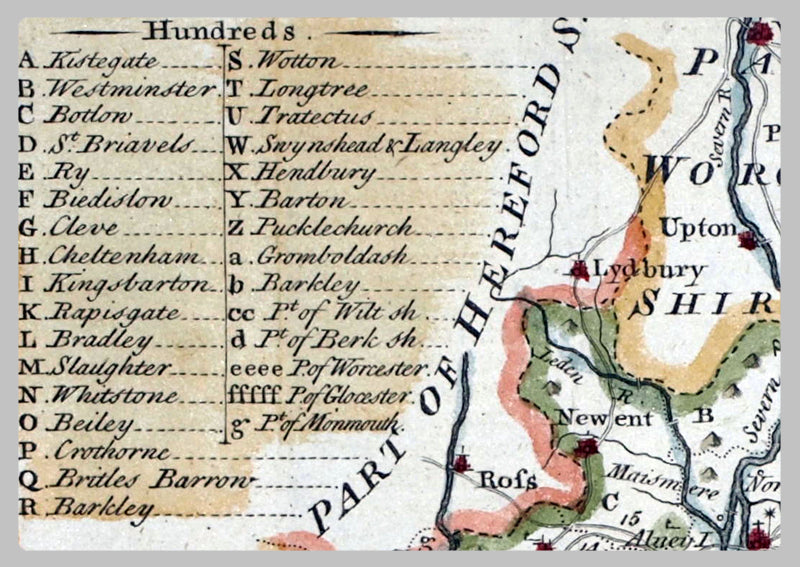 Hundreds.
A. Kistegate
B. Westminster
C Botlon
D. St. Briavels
E Ry
F Biedislow
G. Cleve
H. Cheltenham
I Kingsbarton
K. Rapisgate
L. Bradley
M. Slaughter
N. Whitstone
O. Beiley
P. Crothorne
Q. Britles Barrow
R. Barkley
S. Wotton
T. Longtree
U. Tratectus
W. Swynshead & Langley
X. Hendbury
Y. Barton
Z Pucklechurch
a. Gromboldash
b. Barkley
cc Pt. of Wilt sh.
d Pt. of Berk sh.
eeee P. of Worcester
fffff P. of Glocester
g Pt. of Monmouth
PART OF HEREFORD S.
PA
Severn R
P
WORC
Upton
Lydbury
SHIR
Leden R.
Newent
B
Severn
Roſs
Maismere
C
15
14
Nor
Alney I